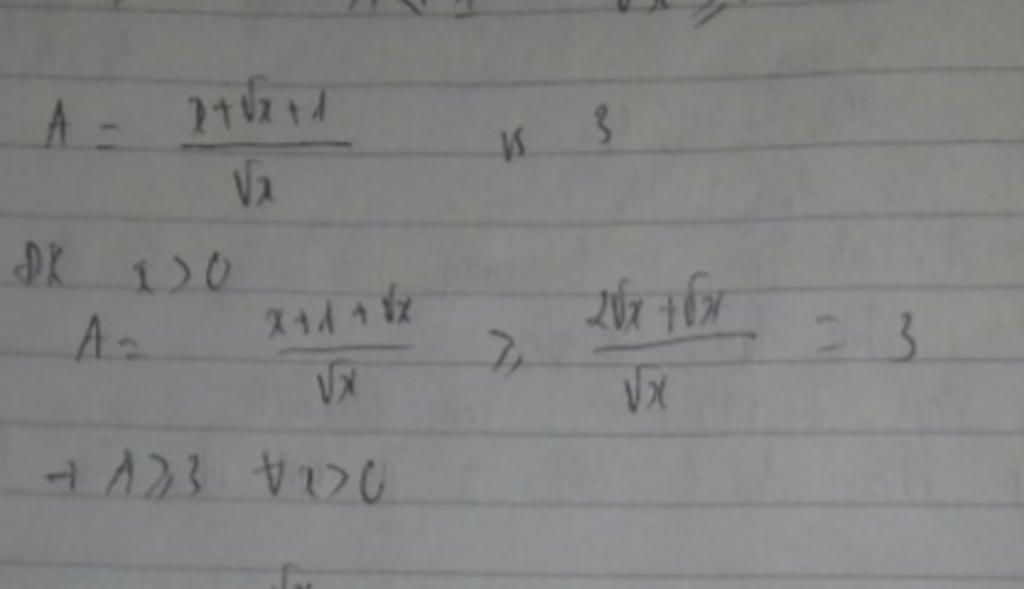 A = (x+√x+1)/√x vs 3
ĐK x>0
A = (x+1+√x)/√x ≥ (2√x+√x)/√x = 3
→ A≥3 ∀x>0